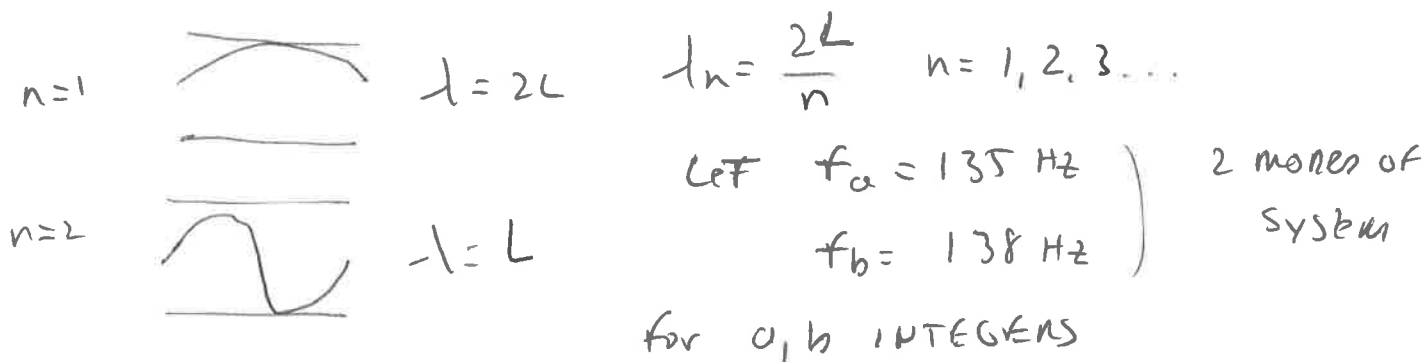 n=1 λ = 2L λn = 2L/n n= 1, 2, 3...
LET fa = 135 Hz
n=2 λ = L fb = 138 Hz ) 2 modes of system
for a, b INTEGERS